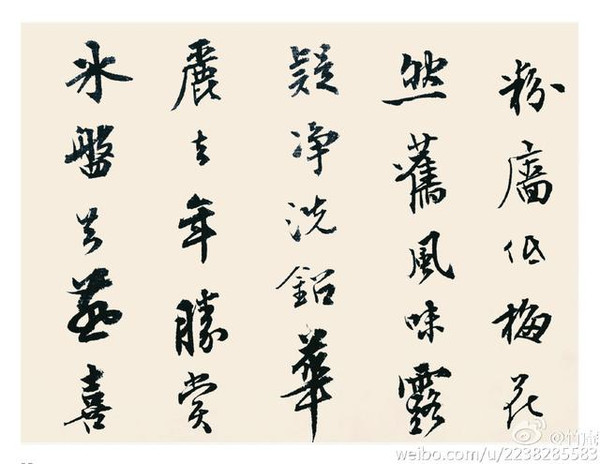 粉廧低梅花
然舊風味露
疑净洗鉛華
麗去年勝賞
冰盤共燕喜
weibo.com/u/2238285583